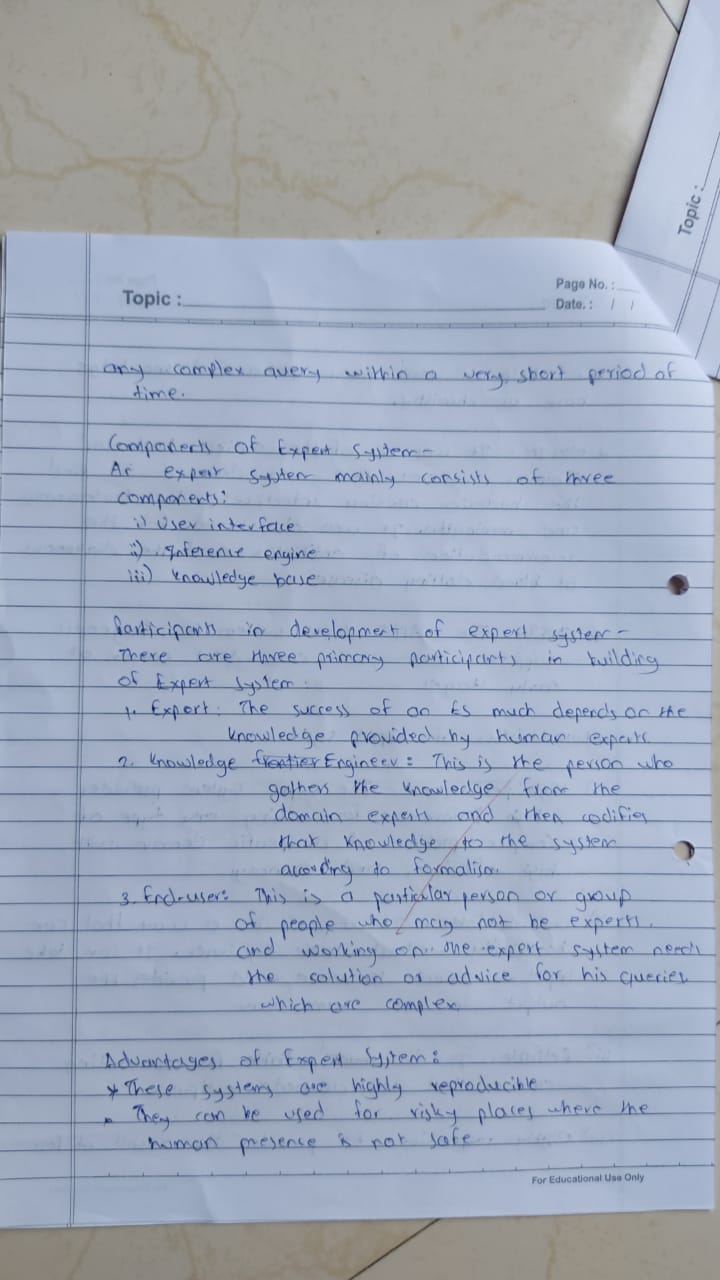 Topic :
Topic :
Page No. :
Date. : / /
any complex query within a very short period of
time.
Components of Expert System -
An expert system mainly consists of three
components:
i) User interface
ii) Inference engine
iii) Knowledge base
Participants in development of expert system -
There are three primary participants in building
of Expert System:
1. Expert: The success of an ES much depends on the
knowledge provided by human experts
2. Knowledge Engineer: This is the person who
gathers the knowledge from the
domain experts and then codifies
that knowledge to the system
according to formalism.
3. End-user: This is a particular person or group
of people who may not be experts,
and working on the expert system needs
the solution or advice for his queries
which are complex.
Advantages of Expert System:
* These systems are highly reproducible
• They can be used for risky places where the
human presence is not safe.
For Educational Use Only